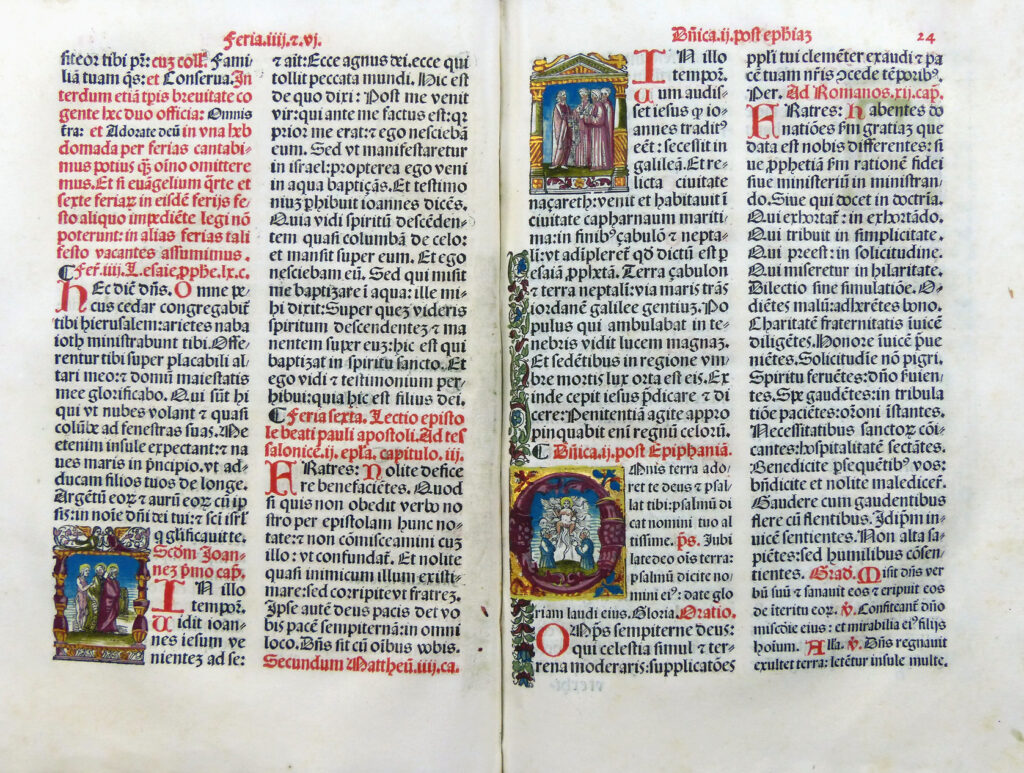 Feria.iiij.⁊.vj.
fiteor tibi pr̃: eiusꝫ coll̃. Fami
liã tuam q̃s: et Conserua. In
terdum etiã tp̃is breuitate co
gente hec duo officia: Omnis
t̃ra: et Adorate deũ in vna heb
domada per ferias cantabi
mus potius q̃ꝫ oĩno omittere
mus. Et si euãgelium q̃rte et
sexte feriaꝝ in eisdẽ ferijs fe
sto aliquo impediẽte legi nõ
poterunt: in alias ferias tali
festo vacantes assumimus.
¶ Fer̃. iiij. L. esaie. ꝓph̃e. lx. c.
HEc diẽ dñs. Omne pe⸗
cus cedar congregabit̃
tibi hierusalem: arietes naba
ioth ministrabunt tibi. Offe⸗
rentur tibi super placabili al⸗
tari meo: ⁊ domũ maiestatis
mee glorificabo. Qui sũt hi
qui vt nubes volant ⁊ quasi
colũbe ad fenestras suas. Me
etenim insule expectant: ⁊ na
ues maris in p̃ncipio. vt ad⸗
ducam filios tuos de longe.
Argẽtũ eoꝝ ⁊ aurũ eoꝝ cũ ip
sis: in noĩe dñi dei tui: ⁊ sci isrl̃
q̃ glificauit te.
Scd̃m Joan⸗
neꝫ p̃mo cap̃.
IN illo
tempoꝝ.
Uidit ioan⸗
nes iesum ve
nienteꝫ ad se:
⁊ ait: Ecce agnus dei. ecce qui
tollit peccata mundi. Hic est
de quo dixi: Post me venit
vir: qui ante me factus est: q̃
prior me erat: ⁊ ego nesciebã
eum. Sed vt manifestaretur
in israel: propterea ego veni
in aqua baptiçãs. Et testimo
niuꝫ ꝑhibuit ioannes dicẽs.
Quia vidi spiritũ descẽden⸗
tem quasi columbã de celo:
et mansit super eum. Et ego
nesciebam eũ. Sed qui misit
me baptizare ĩ aqua: ille mi⸗
hi dixit: Super queꝫ videris
spiritum descendenteꝫ ⁊ ma
nentem super euꝫ: hic est qui
baptizat in spiritu sancto. Et
ego vidi ⁊ testimonium per⸗
hibui: quia hic est filius dei.
¶ Feria sexta. Lectio episto
le beati pauli apostoli. Ad tes
salonice. ij. epl̃a. capitulo. iij.
FRatres: Nolite defice
re benefaciẽtes. Quod
si quis non obedit verbo no
stro per epistolam hunc no⸗
tate: ⁊ non cõmisceamini cuꝫ
illo: vt confundat̃. Et nolite
quasi inimicum illum existi⸗
mare: sed corripite vt fratreꝫ.
Ipse autẽ deus pacis det vo
bis pacẽ sempiternã: in omni
loco. Dñs sit cũ oĩbus vobis.
Secundum Mattheũ. iiij. ca.
Dñica. ij. post eph̃iaꝫ 24
IN illo
tempoꝝ.
Cum audis⸗
set iesus ꝙ io⸗
annes tradit⁹
eẽt: secessit in
galileã. Et re⸗
licta ciuitate
naçareth: venit et habitauit ĩ
ciuitate capharnaum mariti⸗
ma: in finib⁹ çabulõ ⁊ nepta⸗
lĩ: vt adipleret̃ qd̃ dictũ est ꝑ
esaiã. ꝓph̃tã. Terra çabulon
⁊ terra neptalĩ: via maris trãs
iordanẽ galilee gentiuꝫ. Po
pulus qui ambulabat in te⸗
nebris vidit lucem magnaꝫ.
Et sedẽtibus in regione vm⸗
bre mortis lux orta est eis. Ex
inde cepit iesus p̃dicare ⁊ di
cere: Penitentiã agite appro
pinquabit enĩ regnũ celoꝝũ.
¶ Dñica. ij. post Epiphaniã.
OMnis terra ado⸗
ret te deus ⁊ psal
lat tibi: psalmũ di
cat nomini tuo al
tissime. p̃s. Jubi
late deo oĩs terra:
psalmũ dicite no⸗
mini ei⁹: date glo
riam laudi eius. Gloria. Oratio.
OMp̃s sempiterne deus:
qui celestia simul ⁊ ter⸗
rena moderaris: supplicatões
ppl̃i tui clemẽter exaudi ⁊ pa
cẽ tuam nr̃is ↄ̃cede tẽporib⁹.
Per. Ad Romanos. xij. cap̃.
FRatres: Habentes do
natiões sm̃ gratiaꝫ que
data est nobis differentes: si
ue ꝓphetiã sm̃ rationẽ fidei
siue ministeriũ in ministran⸗
do. Siue qui docet in doctrĩa.
Qui exhortat̃: in exhortãdo.
Qui tribuit in simplicitate.
Qui preest: in solicitudine.
Qui miseretur in hilaritate.
Dilectio sine simulatiõe. O⸗
diẽtes malũ: adherẽtes bono.
Charitatẽ fraternitatis ĩuicẽ
diligẽtes. Honore ĩuicẽ p̃ue
niẽtes. Solicitudĩe nõ pigri.
Spiritu feruẽtes: dño ẜuien⸗
tes. Spe gaudẽtes: in tribula
tiõe paciẽtes: orõni ĩstantes.
Necessitatibus sanctoꝝ cõi⸗
cantes: hospitalitatẽ sectãtes.
Benedicite ꝑsequẽtib⁹ vos:
bñdicite et nolite maledicer̃.
Gaudere cum gaudentibus
flere cũ flentibus. Idip̃m in⸗
uicẽ sentientes. Non alta sa⸗
piẽtes: sed humilibus cõsen⸗
tientes. Grad̃. Misit dñs ver
bũ suũ ⁊ sanauit eos ⁊ eripuit eos
de ĩteritu eoꝝ. ℣. Confiteant̃ dño
misc̃ðie eius: et mirabilia ei⁹ filijs
hoĩum. Alla. ℣. Dñs regnauit
exultet terra: letẽtur insule multe.